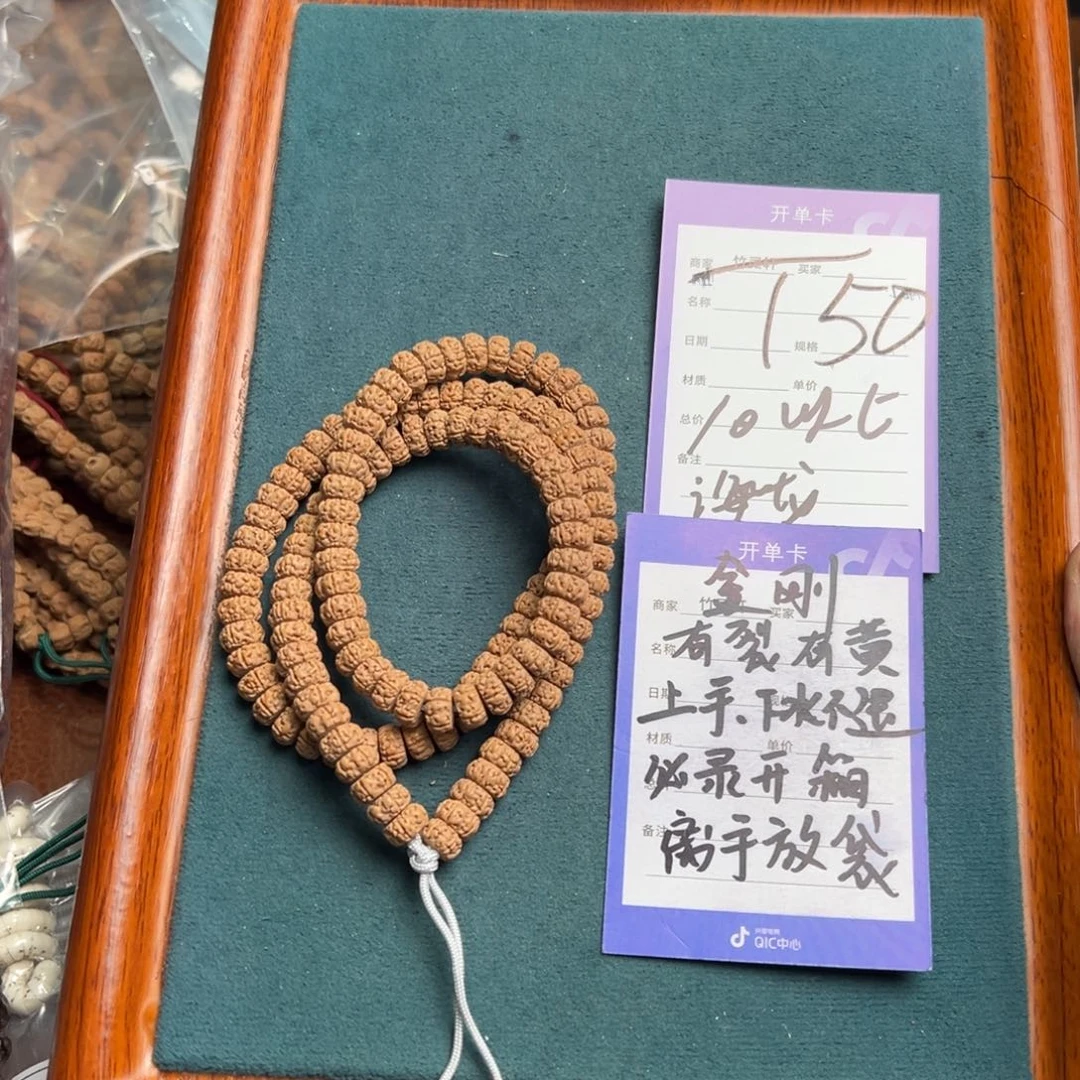 开单卡
商家 竹 买家
名称
日期 规格
150
材质 单价
总价 10以七
备注
海龙
开单卡
金刚
商家 竹 买家
名称 有裂有黄
日期
上手.下水不退
材质 单价
必录开箱
备注 离手放袋
抖音电商
QIC中心